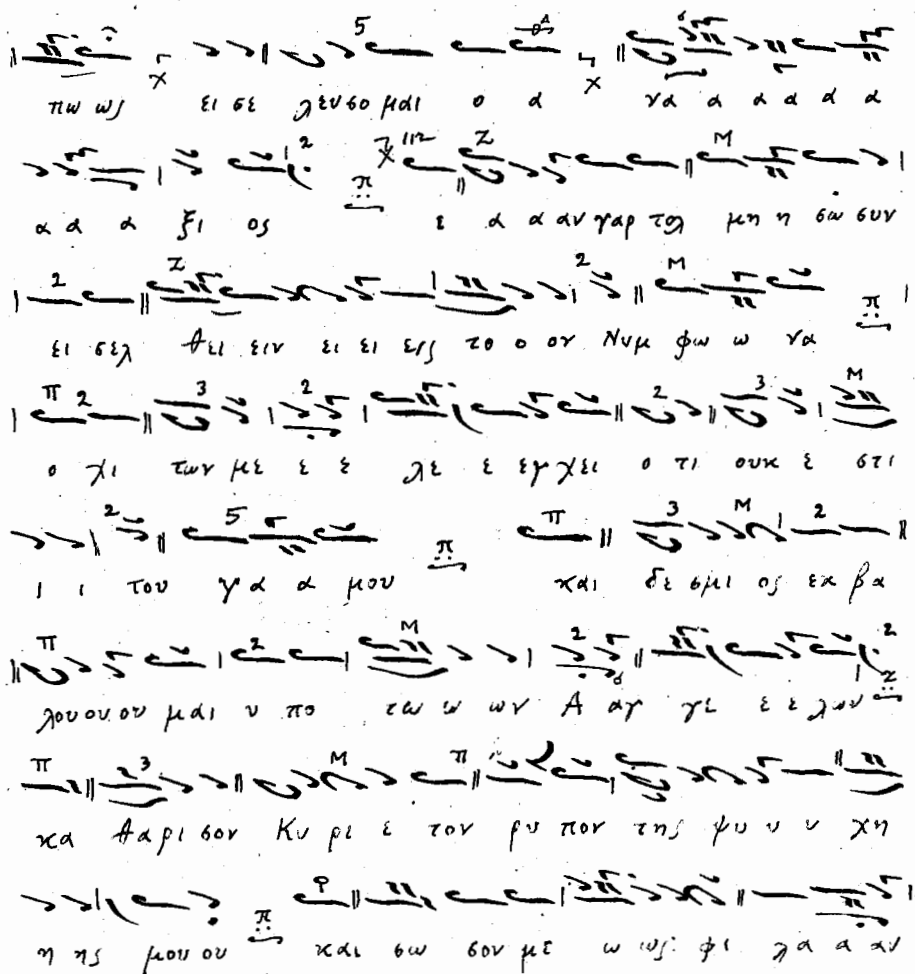 πω ως ει σε λευ σο μαι ο α να α α α α α
α α α ξι ος ε α α αν γαρ τολ μη η σω συν
ει σελ θει ειν ει ει εις το ο ον Νυμ φω ω να
ο χι των με ε ε λε ε εγ χει ο τι ουκ ε στι
ι ι του γα α μου και δε σμι ος εκ βα
λου ου ου μαι υ πο τω ω ων Α αγ γε ε ε λων
κα θα ρι σον Κυ ρι ε τον ρυ πον της ψυ υ υ χη
η ης μου ου και σω σον με ω ως φι λα α αν